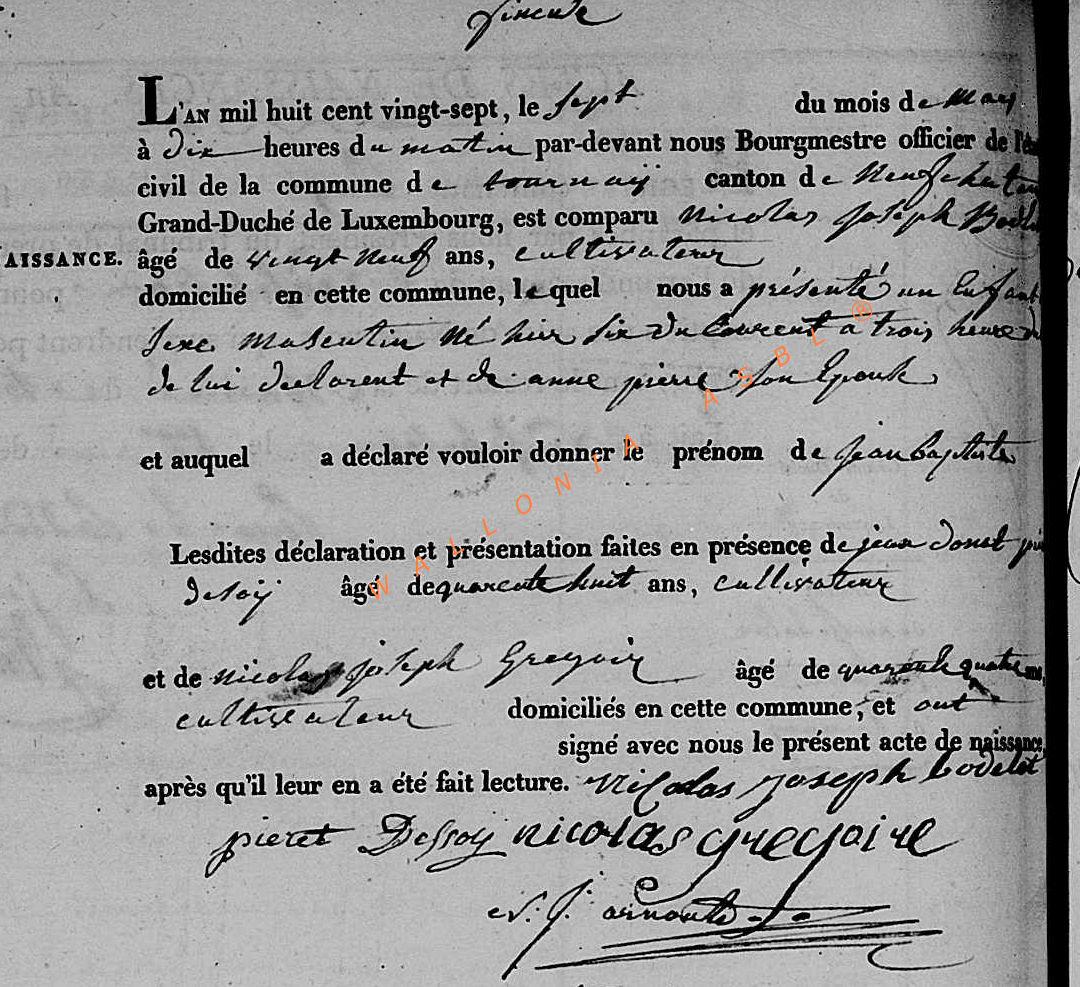 L'AN mil huit cent vingt-sept, le sept du mois de may
à dix heures du matin par-devant nous Bourgmestre officier de
civil de la commune de tournaij canton de
Grand-Duché de Luxembourg, est comparu nicolas joseph
AISSANCE.
âgé de vingt neuf ans, cultivateur
domicilié en cette commune, lequel nous a présenté un Enfant
sexe né hier six du Courent a trois heure
de lui declarent et de anne pierre son Epouse
et auquel a déclaré vouloir donner le prénom de jean baptiste
Lesdites déclaration et présentation faites en présence de jean
desoij âgé de quarente huit ans, cultivateur
et de nicolas joseph Gregoir âgé de quarente quatre ans,
cultivateur domiciliés en cette commune, et ont
signé avec nous le présent acte de naissance,
après qu'il leur en a été fait lecture. Nicolas joseph bodelet
pieret Dessoij nicolas gregoire
WALLONIA ASBL ®